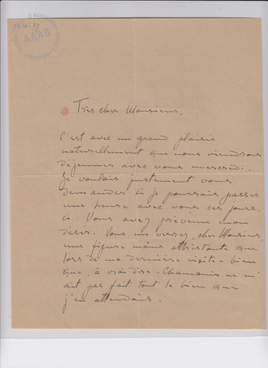 AAAB
Très cher Monsieur,
C'est avec un grand plaisir
naturellement que nous viendrons
déjeuner avec vous mercredi.
Je voulais justement vous
demander si je pourrais passer
une heure avec vous ces jours
ci. Vous avez prévenu mon
désir. Vous me verrez, cher Monsieur,
une figure moins attristante que
lors de ma dernière visite - bien
que, à vrai dire, Chamonix ne m'
ait pas fait tout le bien que
j'en attendais.